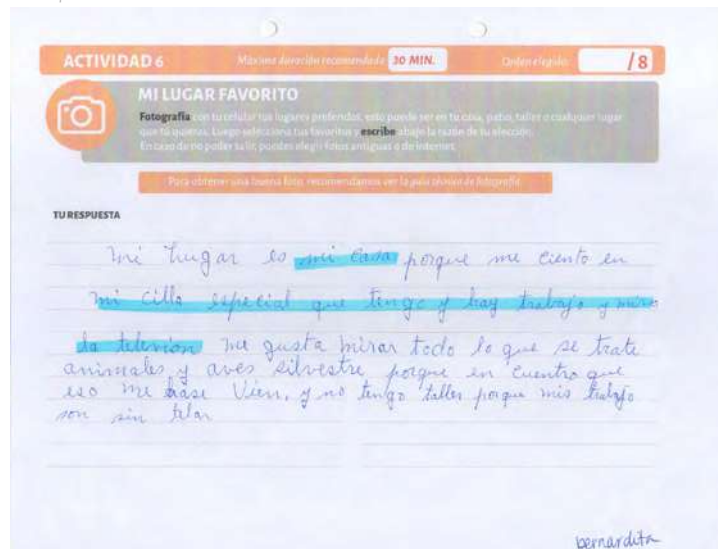 ACTIVIDAD 6
Máxima duración recomendada 30 MIN.
Orden elegido: /8
MI LUGAR FAVORITO
Fotografía con tu celular tus lugares preferidos, esto puede ser en tu casa, patio, taller o cualquier lugar
que tú quieras. Luego selecciona tus favoritos y escribe abajo la razón de tu elección.
En caso de no poder salir, puedes elegir fotos antiguas o de internet.
Para obtener una buena foto, recomendamos ver la guía técnica de fotografía
TU RESPUESTA
mi lugar es mi casa porque me ciento en
mi cilla especial que tengo y hay trabajo y miro
la televion me gusta mirar todo lo que se trate
animales y aves silvestre porque en cuentro que
eso me hase Vien, y no tengo taller porque mis trabajo
son sin telar
bernardita